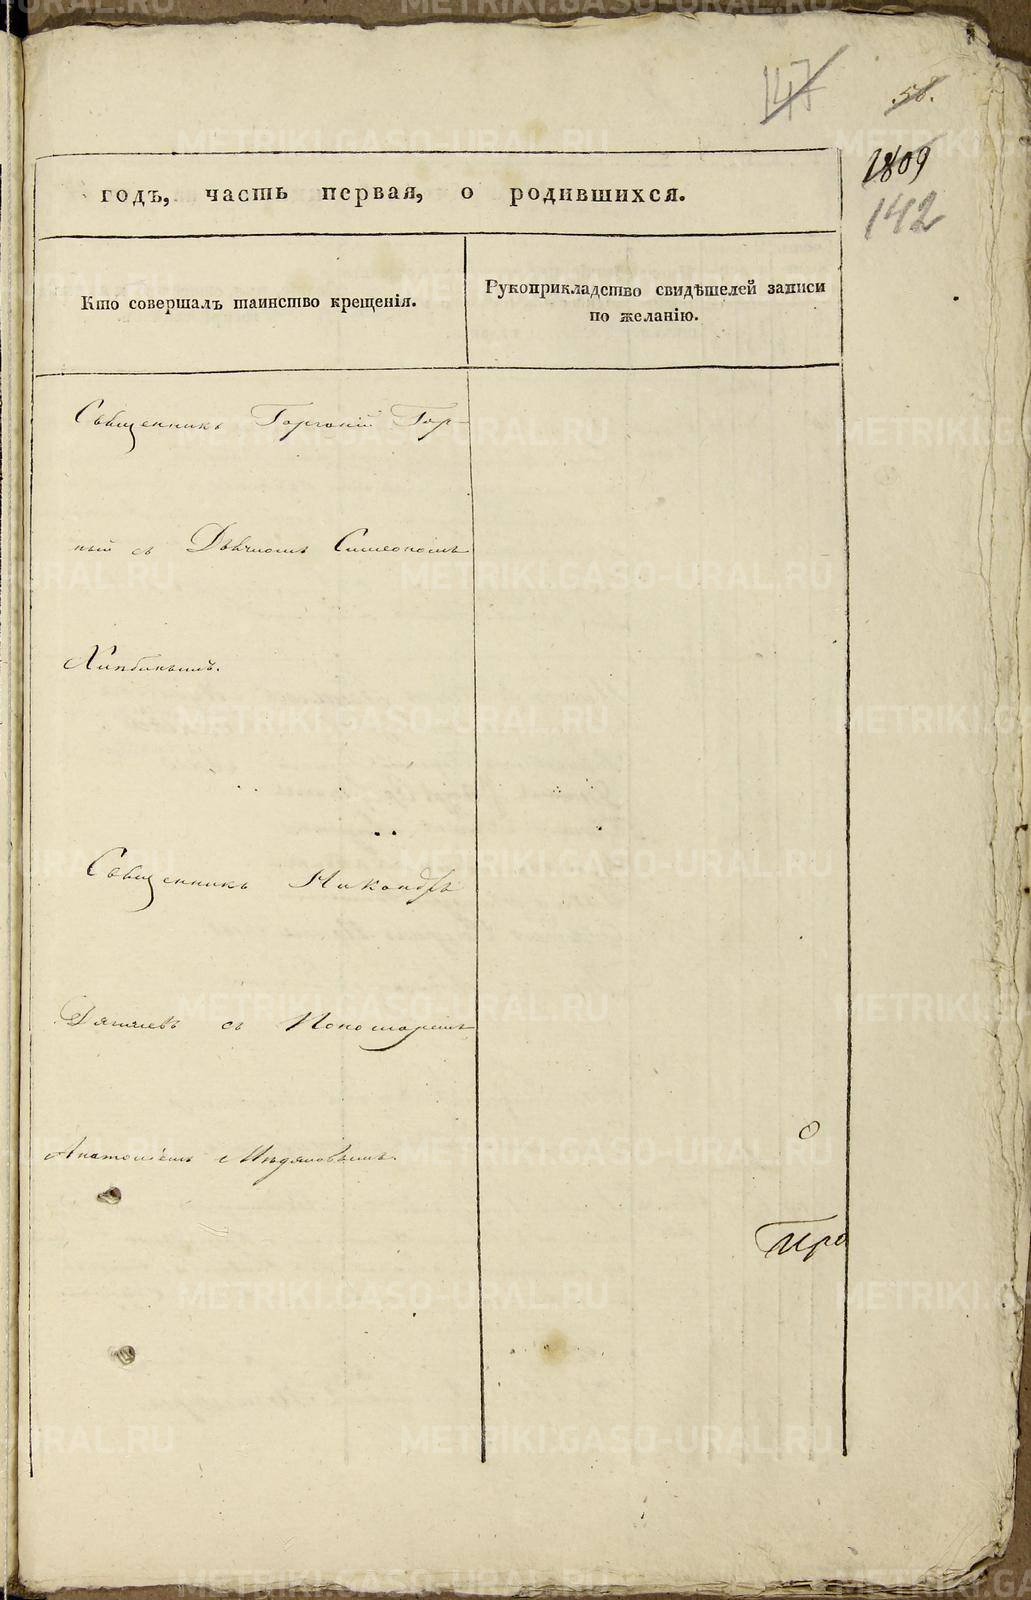 147
58.
1809
142
годъ, часть первая, о родившихся.
Кто совершалъ таинство крещенія.
Рукоприкладство свидѣтелей записи
по желанію.
Священникъ Горгоній Гор-
ный съ Дьячкомъ Симеономъ
Священникъ Никандръ
съ Пономаремъ
Анатоліемъ
METRIKI.GASO-URAL.RU